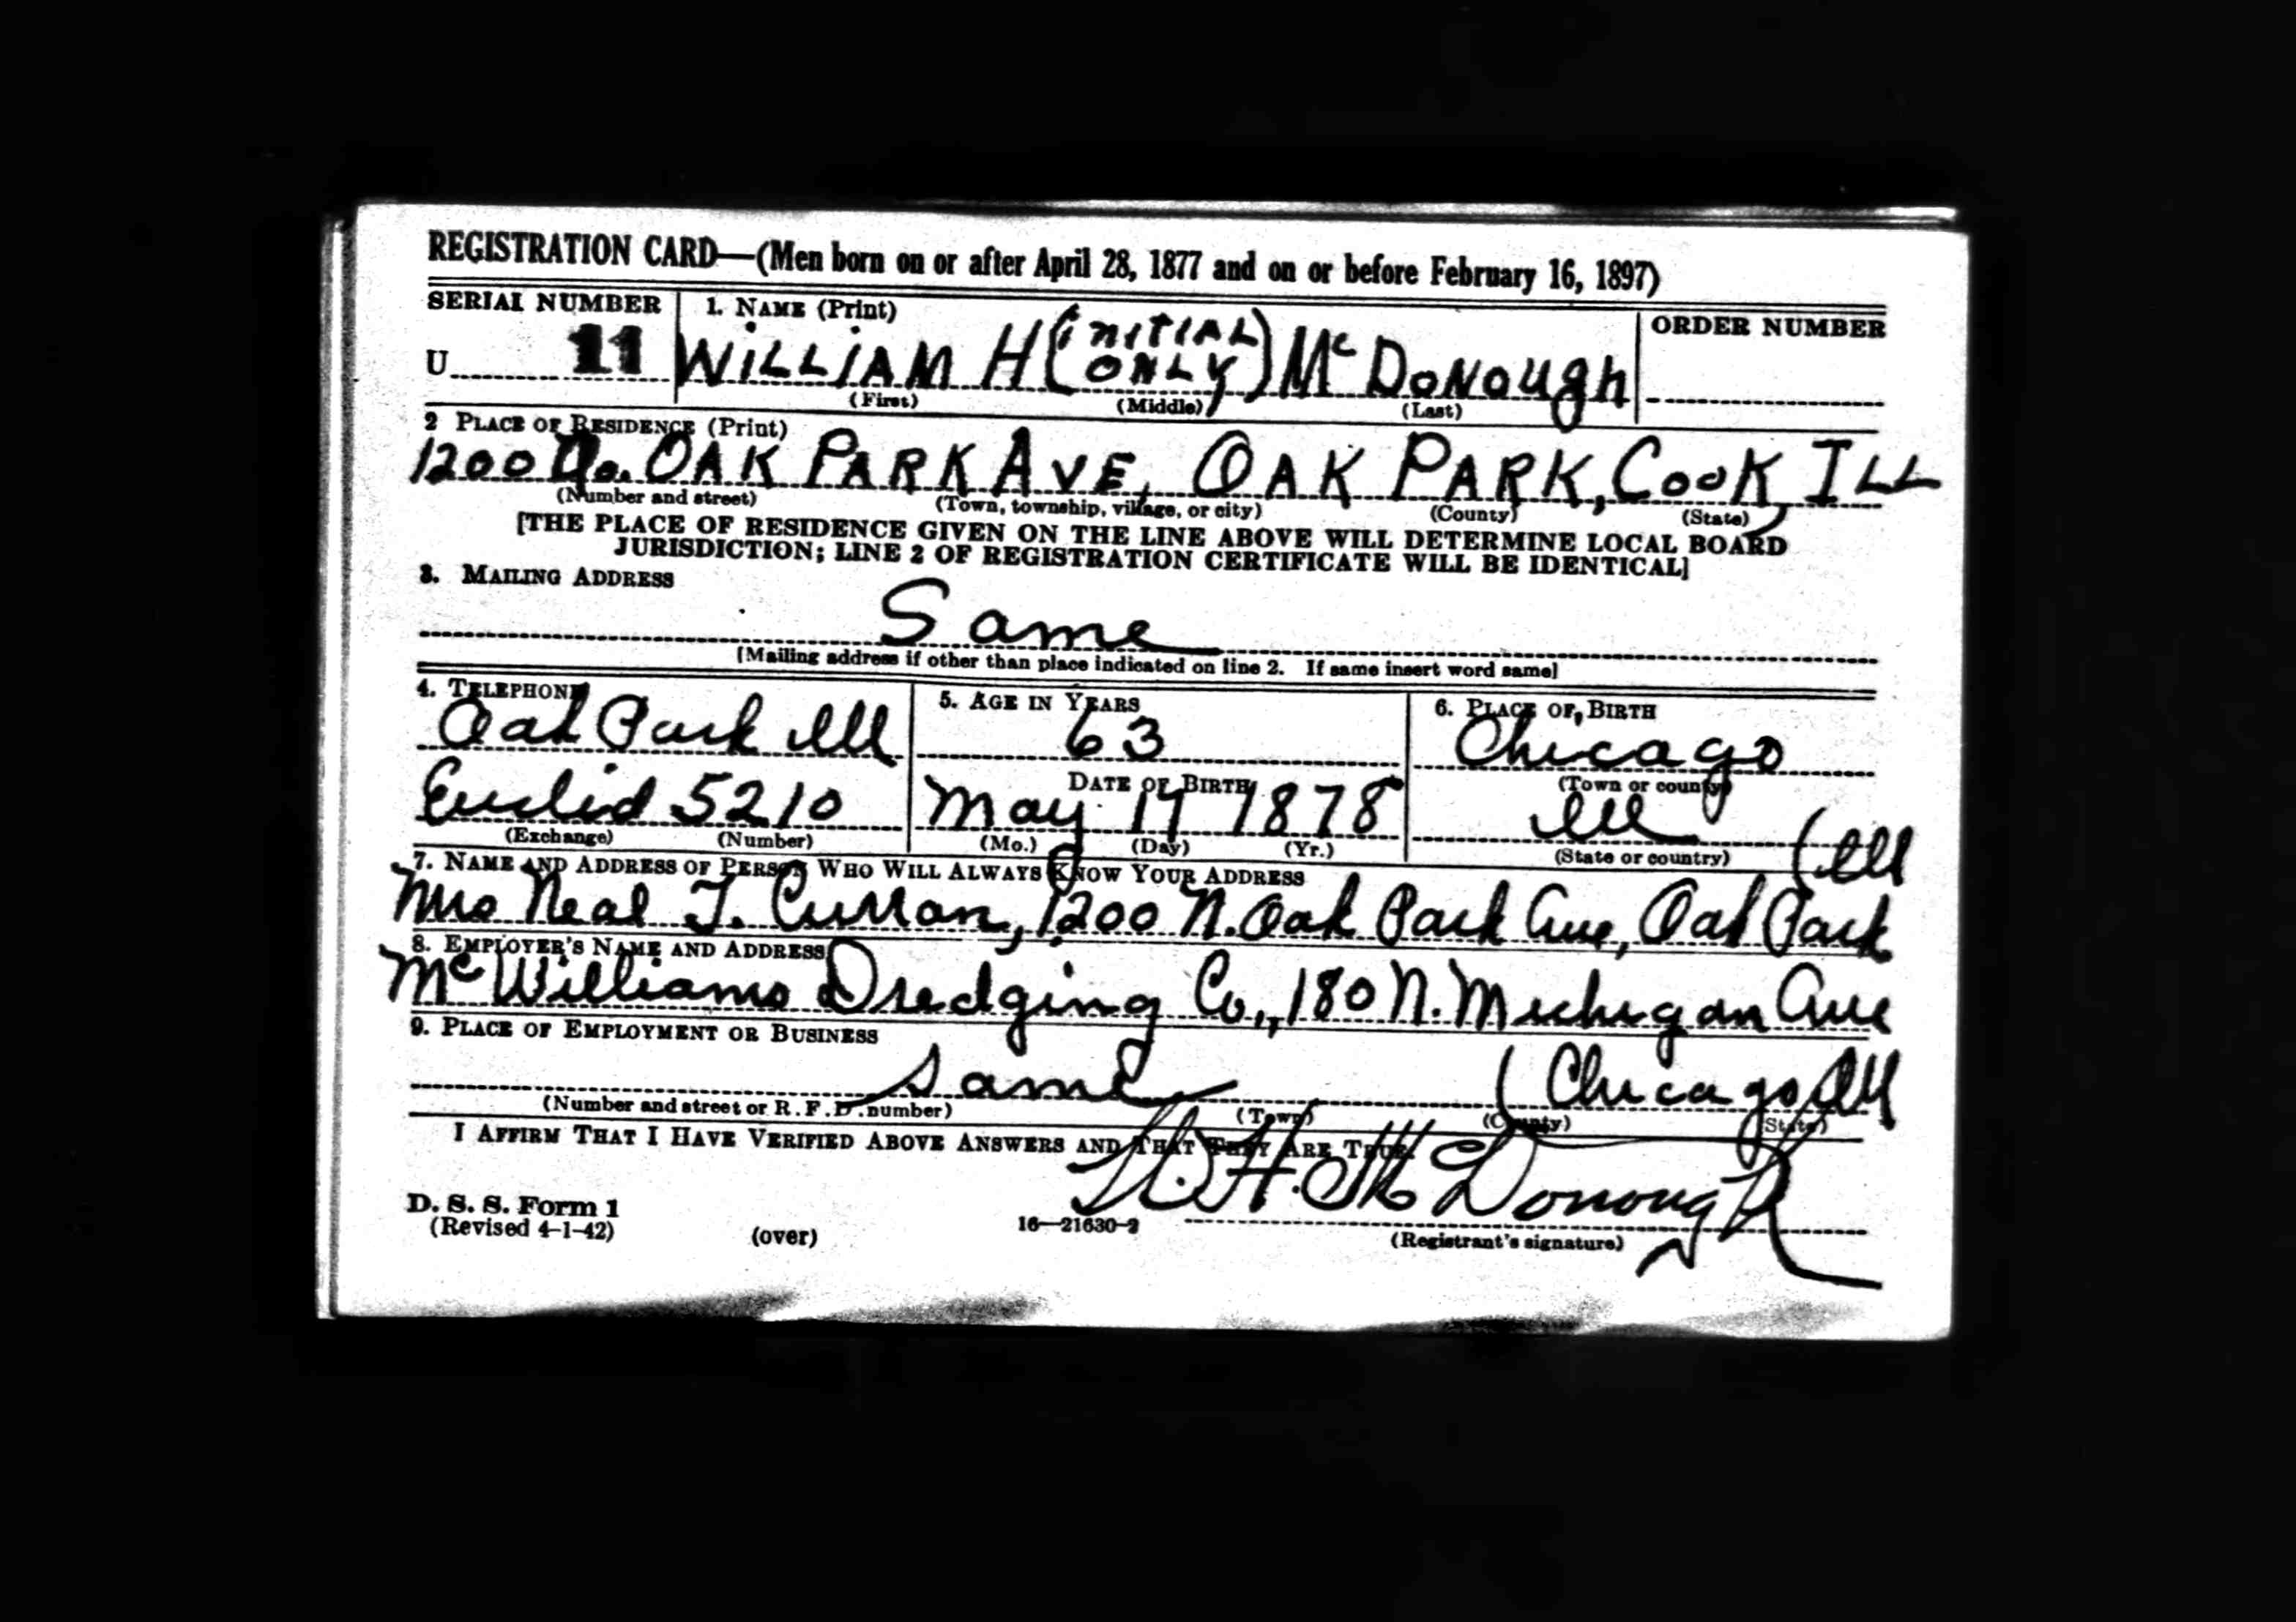 REGISTRATION CARD—(Men born on or after April 28, 1877 and on or before February 16, 1897)
SERIAL NUMBER 1. NAME (Print) ORDER NUMBER
U 11 WILLIAM H (INITIAL ONLY) McDONOUgh
(First) (Middle) (Last)
2 PLACE OF RESIDENCE (Print)
1200 No. OAK PARK AVE, OAK PARK, COOK, ILL
(Number and street) (Town, township, village, or city) (County) (State)
[THE PLACE OF RESIDENCE GIVEN ON THE LINE ABOVE WILL DETERMINE LOCAL BOARD
JURISDICTION; LINE 2 OF REGISTRATION CERTIFICATE WILL BE IDENTICAL]
3. MAILING ADDRESS
Same
[Mailing address if other than place indicated on line 2. If same insert word same]
4. TELEPHONE 5. AGE IN YEARS 6. PLACE OF BIRTH
Oak Park Ill 63 Chicago
DATE OF BIRTH (Town or county)
Euclid 5210 May 17 1878 Ill
(Exchange) (Number) (Mo.) (Day) (Yr.) (State or country)
7. NAME AND ADDRESS OF PERSON WHO WILL ALWAYS KNOW YOUR ADDRESS (Ill
Mrs Neal J. Curran, 1200 N. Oak Park Ave, Oak Park
8. EMPLOYER'S NAME AND ADDRESS
McWilliams Dredging Co., 180 N. Michigan Ave
9. PLACE OF EMPLOYMENT OR BUSINESS
Same (Chicago Ill
(Number and street or R. F. D. number) (Town) (County) (State)
I AFFIRM THAT I HAVE VERIFIED ABOVE ANSWERS AND THAT THEY ARE TRUE.
W. H. McDonough
D. S. S. Form 1
(Revised 4-1-42) (over) 16—21630-2 (Registrant's signature)